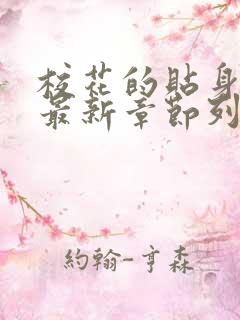 校花的貼身
最新章節列
約翰-亨森